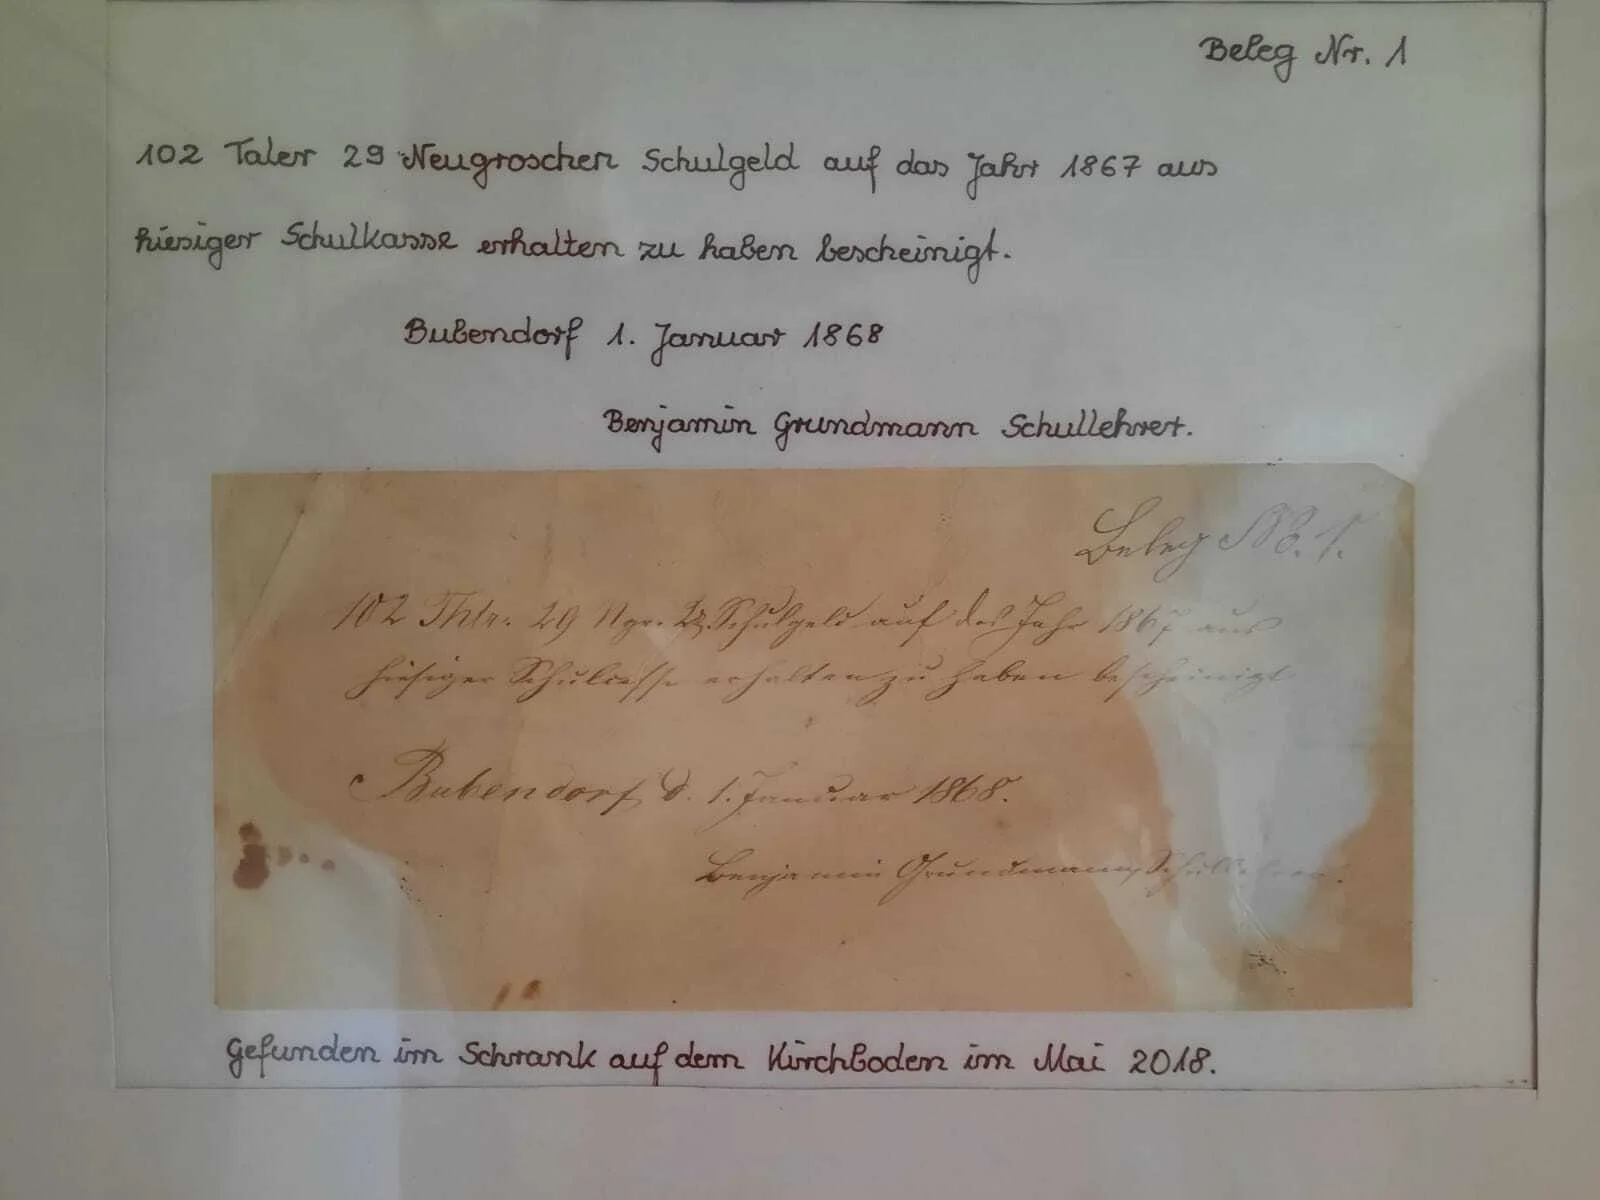 Beleg Nr. 1
102 Taler 29 Neugroschen Schulgeld auf das Jahr 1867 aus
hiesiger Schulkasse erhalten zu haben bescheinigt.
Bubendorf 1. Januar 1868
Benjamin Grundmann Schullehrer.
Beleg No. 1.
102 Thlr. 29 Ngr. Schulgeld auf das Jahr 1867 aus
hiesiger Schulcasse erhalten zu haben bescheinigt
Bubendorf, d. 1. Januar 1868.
Benjamin Grundmann, Schullehrer.
Gefunden im Schrank auf dem Kirchboden im Mai 2018.